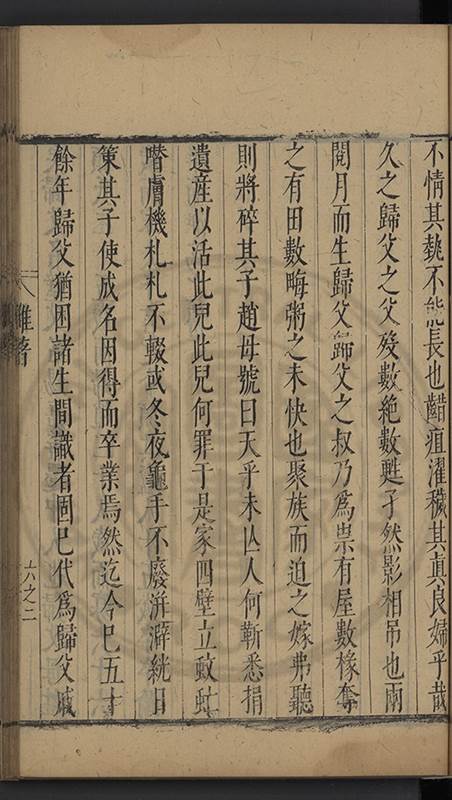 不情其孰不能長也齰疽濯穢其真良婦乎哉
久之歸父之父歿數絶數甦孑然影相吊也兩
閱月而生歸父歸父之叔乃為祟有屋數椽奪
之有田數畮粥之未快也聚族而迫之嫁弗聽
則將碎其子趙母號曰天乎未亾人何靳悉捐
遺産以活此兒此兒何罪于是家四壁立蚊虻
噆膚機札札不輟或冬夜龜手不廢洴澼絖日
策其子使成名因得而卒業焉然迄今已五十
餘年歸父猶困諸生間識者固已代為歸父戚
雜著
六之二